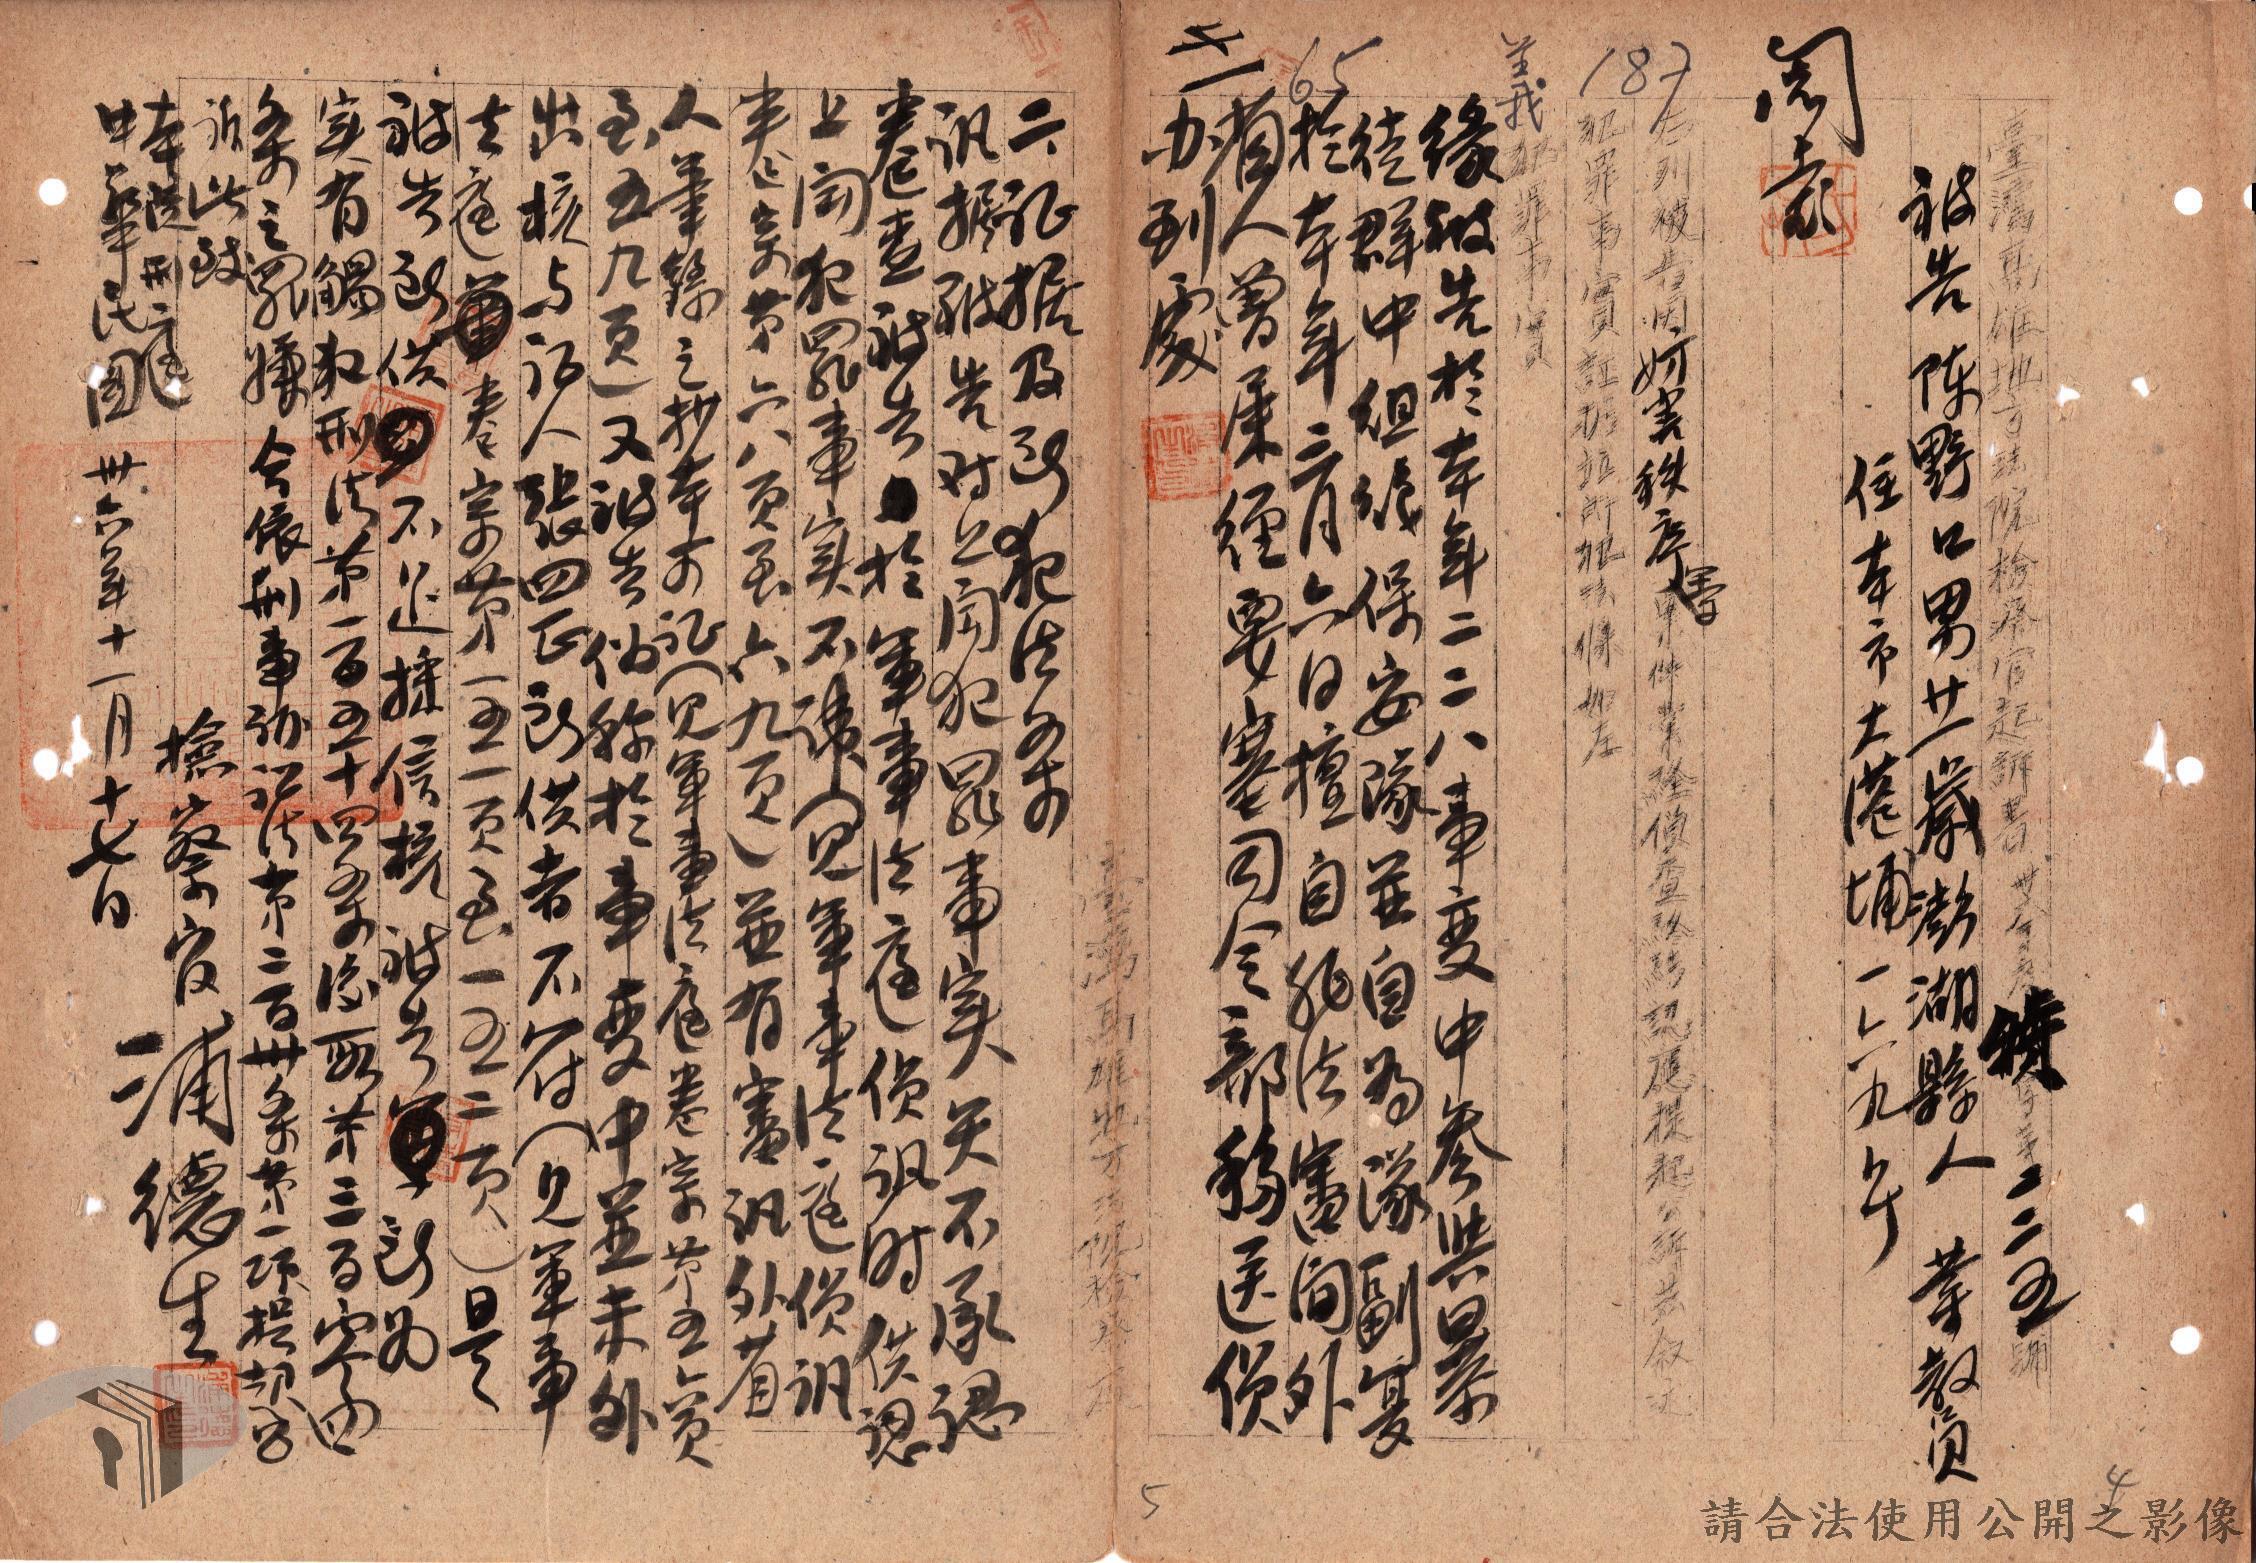 臺灣高雄地方法院檢察官起訴書 卅六年度 字第二二五號
被告 陳野口 男 廿一歲 澎湖縣人 業教員
住本市大港埔一六九号
閱
187
右列被告因妨害秩序等案件業經偵查終結認應提起公訴茲敘述
犯罪事實証據並所犯法條如左
義
犯罪事實
緣被告於本年二二八事変中参與暴
徒群中組織保安隊並自為隊副复
65
於本年三月六日擅自非法審問外
省人曾 經要塞司令部移送偵
办到處
二、証據及所犯法条
訊據被告对上開犯罪事実矢不承認
卷查被告於軍事法庭偵訊时供認
上開犯罪事実不諱（見軍事法庭偵訊
卷宗第六八頁至六九頁）並有審訊外省
人筆錄之抄本可証（見軍事法庭卷宗第五六頁
至五九頁）又被告仍称於事变中並未外
出核与証人張四正所供者不符（見軍事
法庭卷宗第一五一頁至一五二頁）是
被告所供不足採信核被告所為
実有觸犯刑法第一百五十四条後段第三百零四
条之罪嫌合依刑事訴訟法第二百卅条第一項提起公
訴此致
本院刑二庭
中華民國卅六年十一月十七日
檢察官 浦德生
臺灣高雄地方法院檢察處
4
5
請合法使用公開之影像